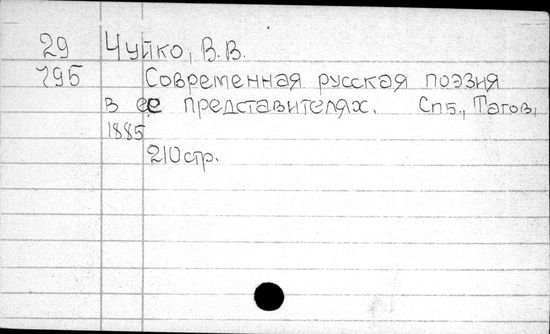 29 Чуйко, В.В.
195 Современная русская поэзия
в ее представителях. Спб., Тагов,
1885
210стр.